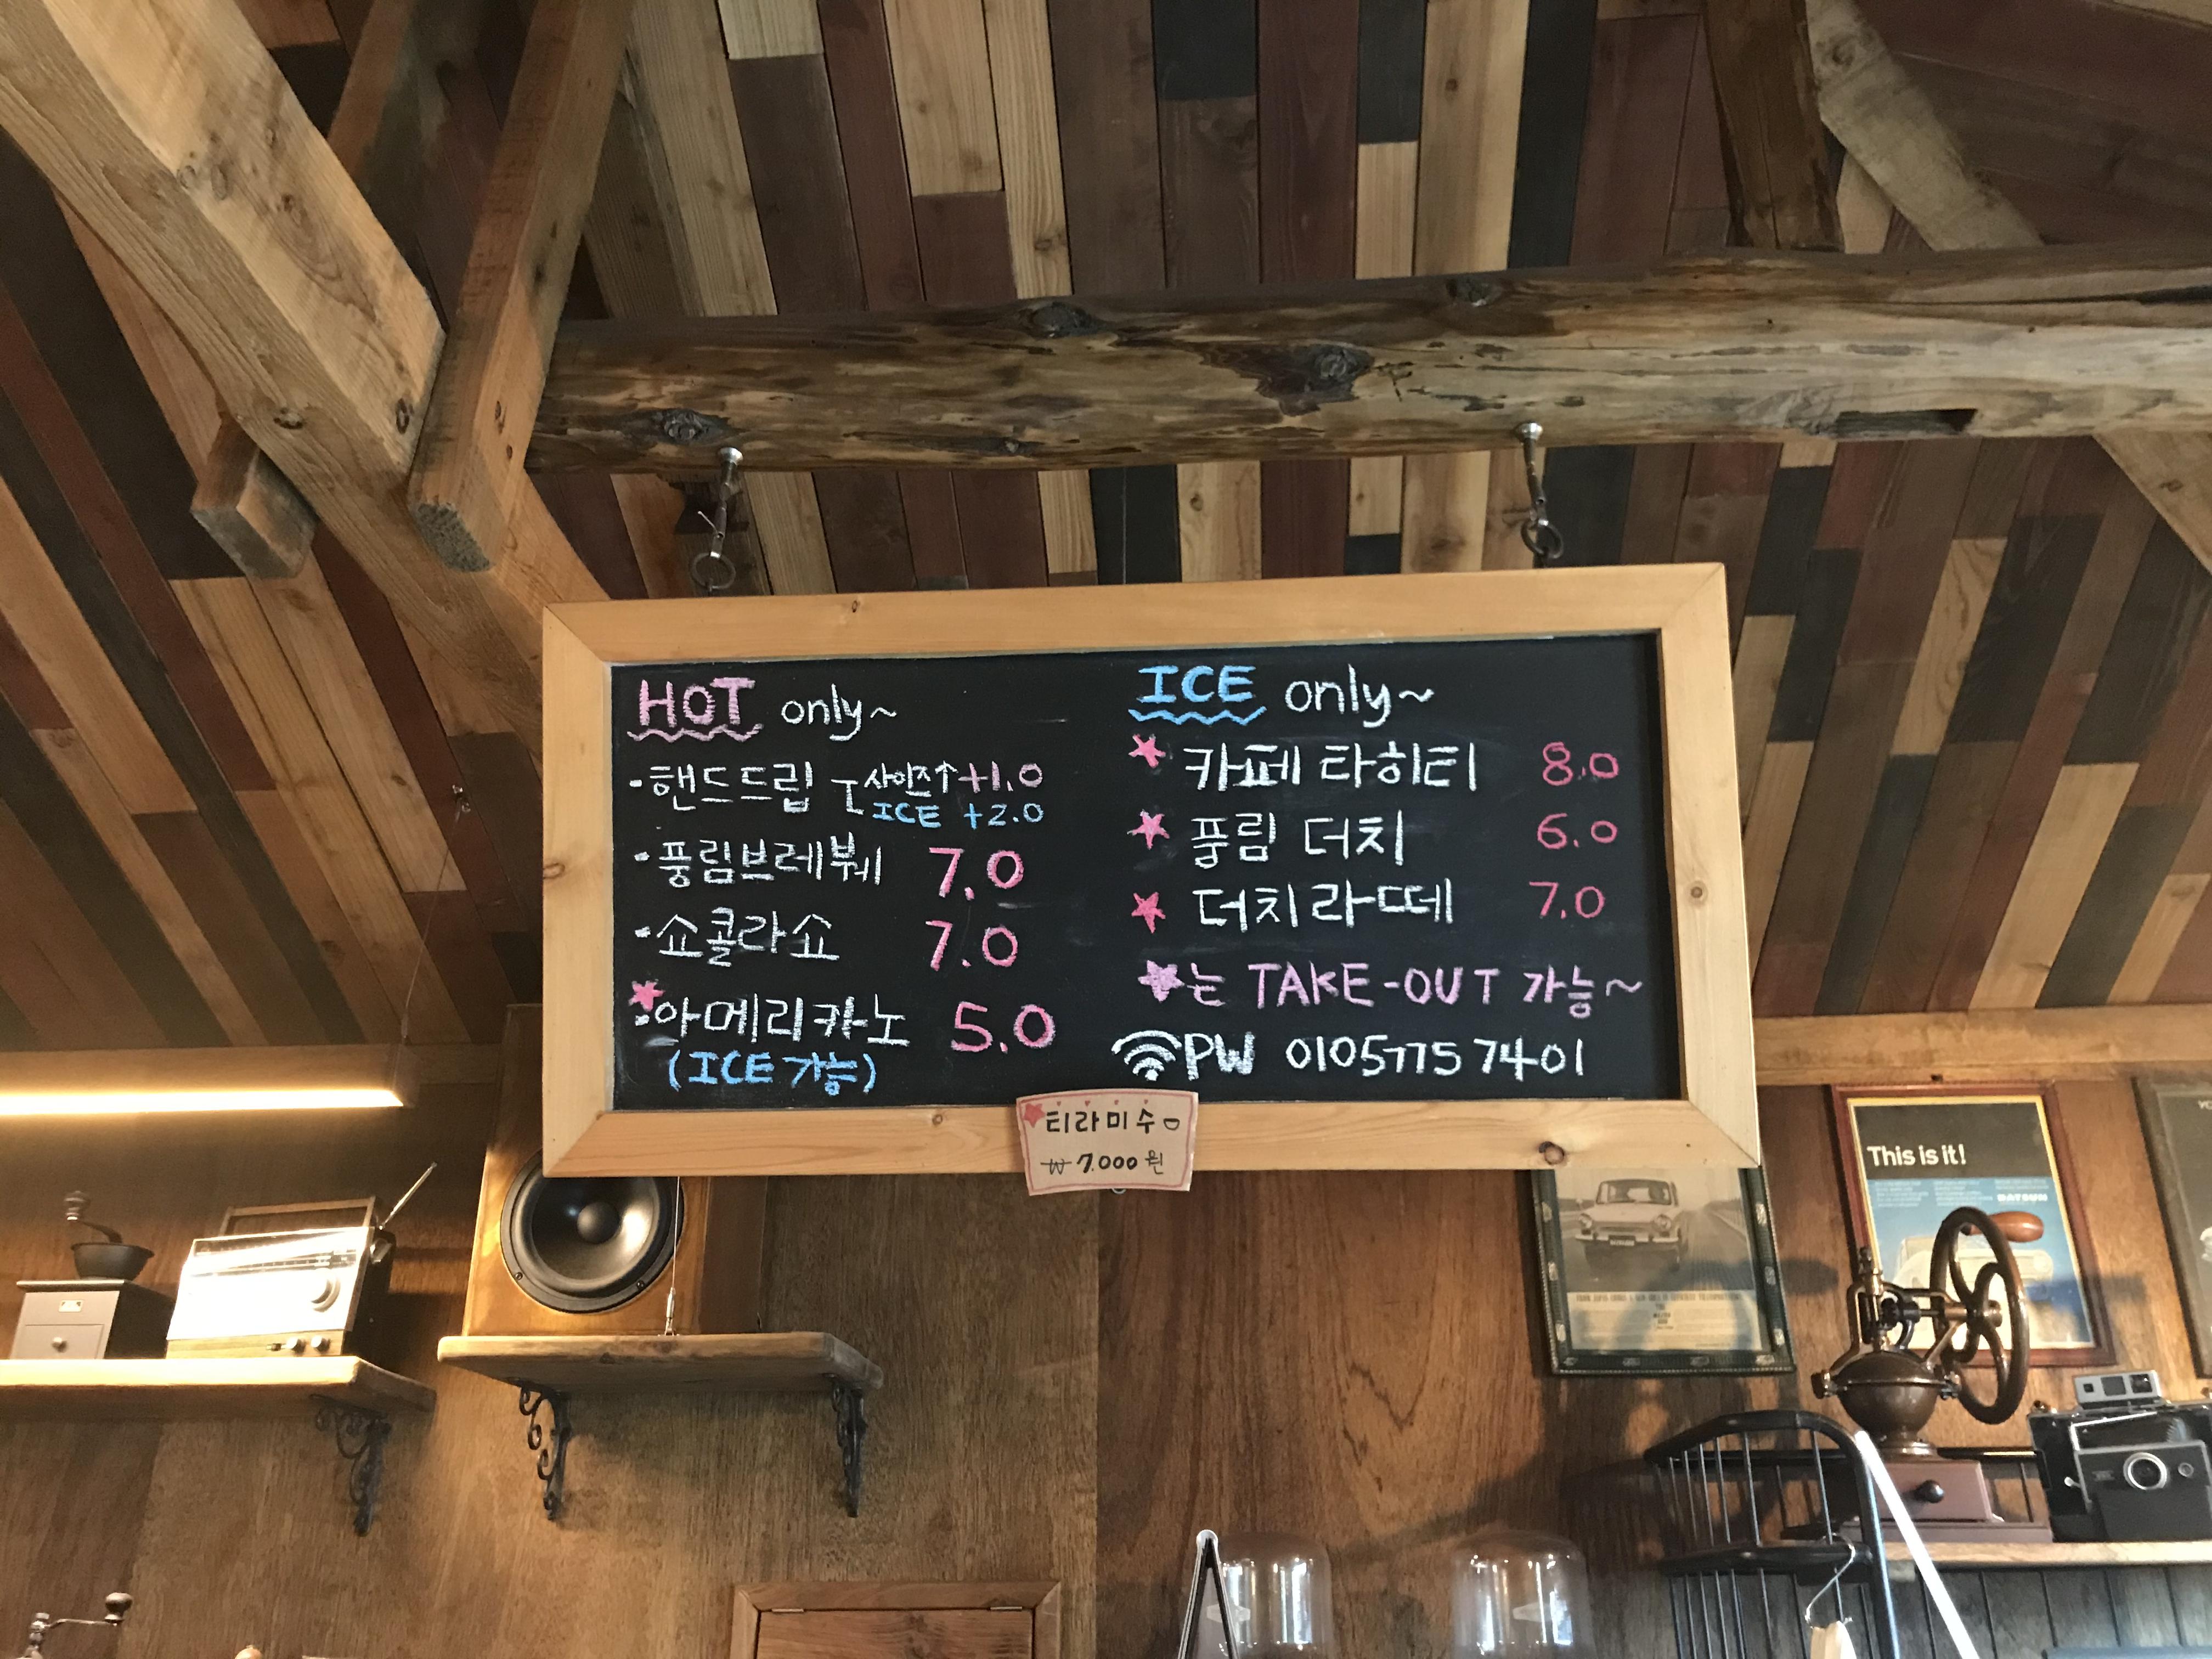 HOT only~
·핸드드립 사이즈↑ +1.0
ICE +2.0
·풍림브레붸 7.0
·쇼콜라쇼 7.0
★·아메리카노 5.0
(ICE 가능)
ICE only~
★ 카페 타히티 8.0
★ 풍림 더치 6.0
★ 더치라떼 7.0
★는 TAKE-OUT 가능~
PW 01057757401
티라미수
₩ 7.000원
This is it!
DATSUN